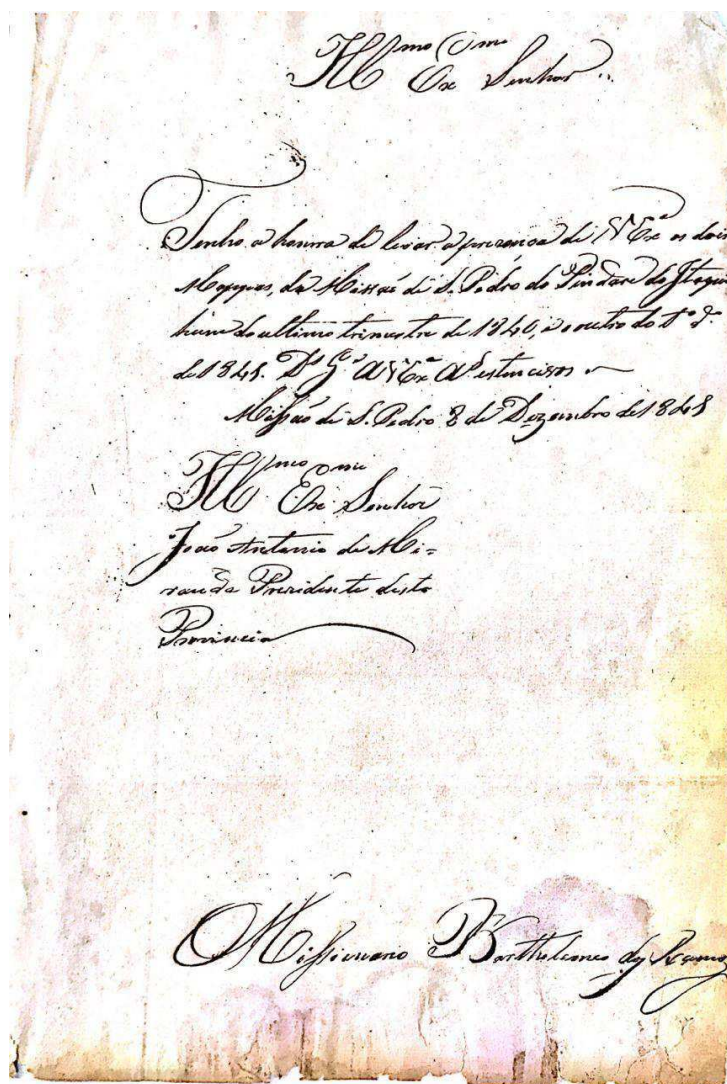 Illmo Exmo Senhor
Tenho a honra de levar a prezença de V Exª os dois
Mappas, da Missaõ de S. Pedro do Pindare do
hum do ultimo trimestre de 1840, e o outro do 1º dº
de 1841. Dˢ Gᵉ a V Exª Aˢ
Missaõ de S. Pedro 8 de Dezembro de 1841
Illmo Exmo Senhor
João Antonio de Mi=
randa Prezidente desta
Provincia
O Missionario Bartholomeo dos Ramos